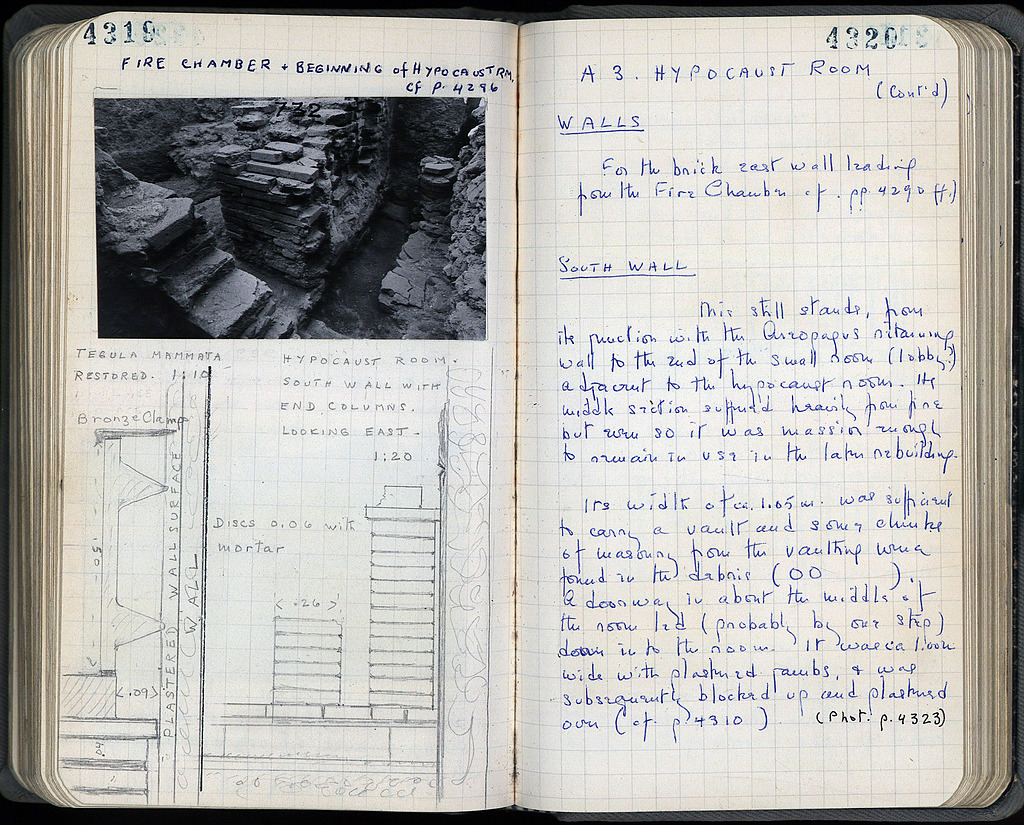 4319
FIRE CHAMBER + BEGINNING of HYPOCAUST RM.
cf p. 4296
772
TEGULA MAMMATA
RESTORED. 1:10
Bronze Clamp
PLASTERED WALL SURFACE
WALL
.05
<.09>
.04
HYPOCAUST ROOM.
SOUTH WALL WITH
END COLUMNS.
LOOKING EAST.
1:20
DISCS 0.06 with
mortar
<.26>
4320
A 3. HYPOCAUST ROOM
(Cont'd)
WALLS
For the brick east wall leading
from the Fire Chamber cf. pp. 4290 ff.)
SOUTH WALL
This still stands, from
its junction with the Areopagus retaining
wall to the end of the small room (lobby?)
adjacent to the hypocaust room. Its
middle section suffered heavily from fire
but even so it was massive enough
to remain in use in the later rebuilding.
Its width of ca. 1.05 m. was sufficient
to carry a vault and some chunks
of masonry from the vaulting were
found in the debris (OO ).
A doorway in about the middle of
the room led (probably by one step)
down into the room. It was ca 1.00m
wide with plastered jambs, & was
subsequently blocked up and plastered
over (cf p. 4310 ) (Phot. p. 4323)